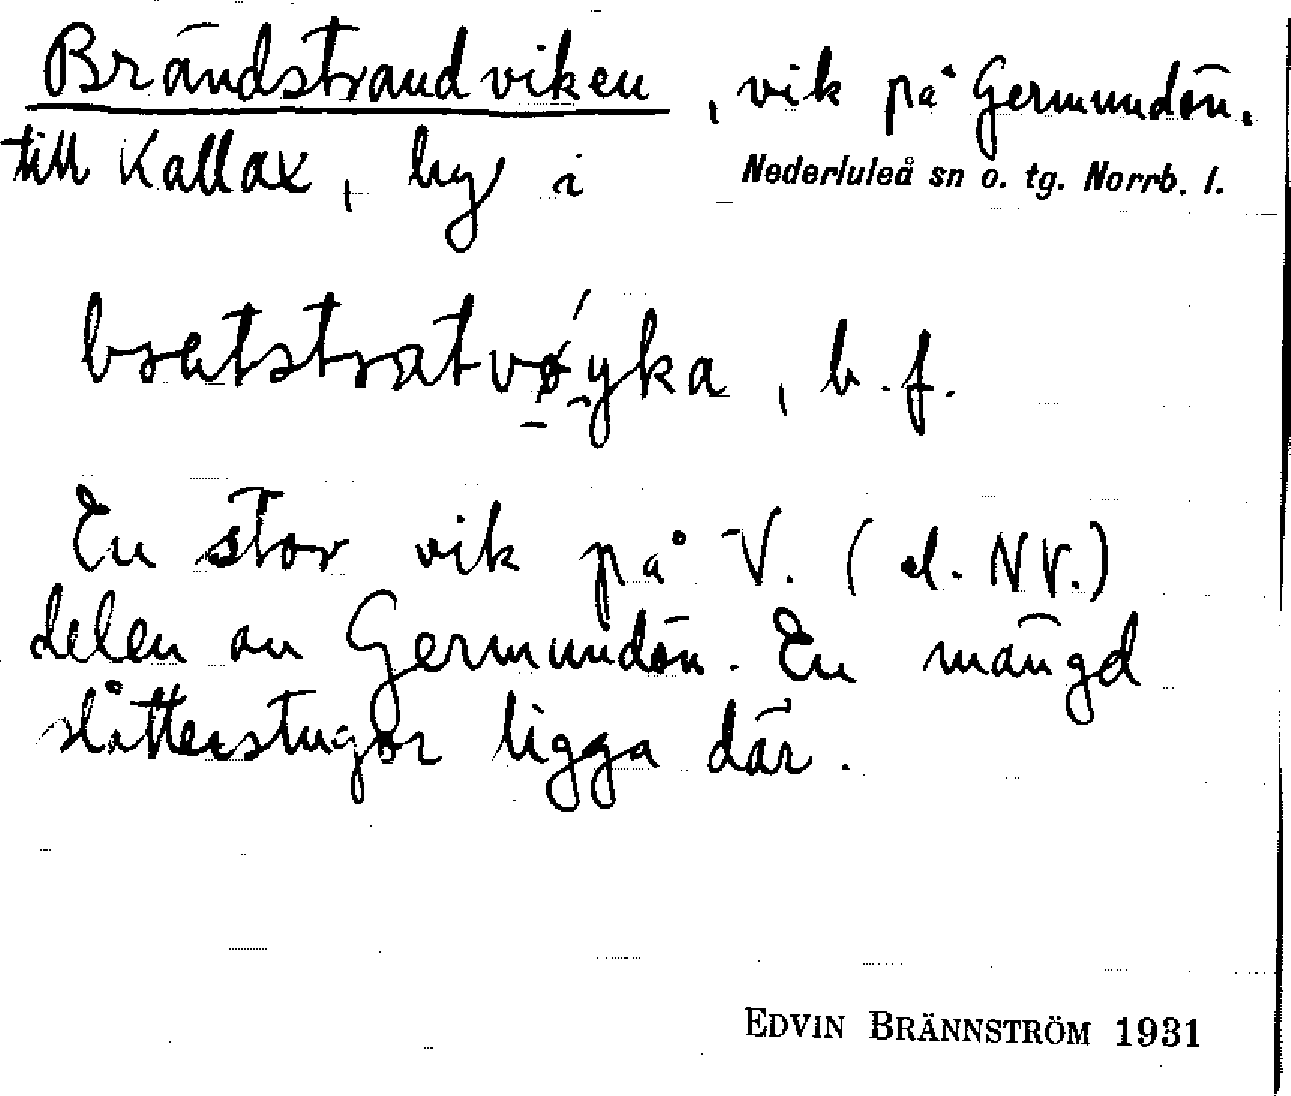 Brändstrandviken, vik på Germundön.
till Kallax, by i Nederluleå sn o. tg. Norrb. l.
bratstratvø´yka, b.f.
En stor vik på V. (el. NV.)
delen av Germundön. En mängd
slåtterstugor ligga där.
EDVIN BRÄNNSTRÖM 1931